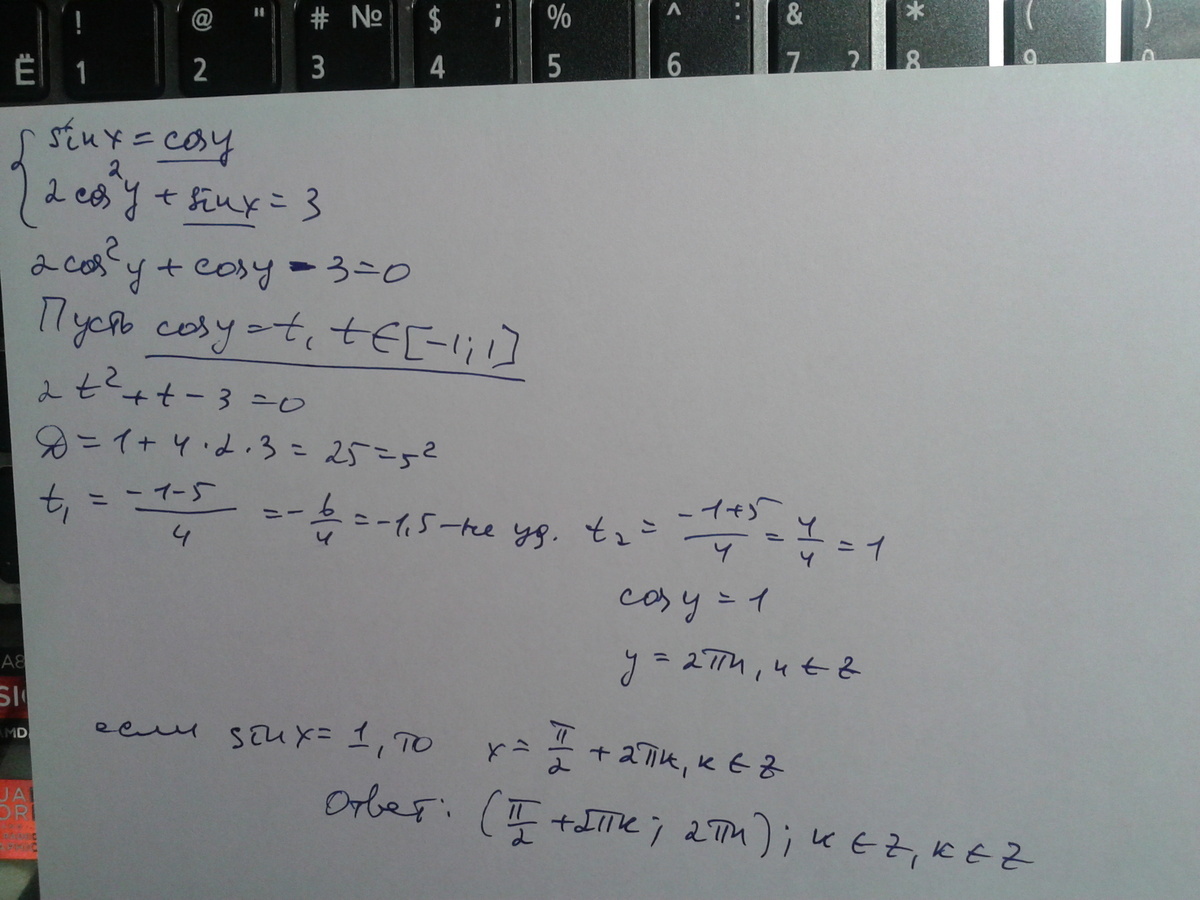 Ё ! 1 @ " 2 # № 3 $ ; 4 % 5 ^ : 6 & 7 ? * 8 ( 9 ) 0
{ sin x = cos y
2 cos² y + sin x = 3
2 cos² y + cos y - 3 = 0
Пусть cos y = t, t ∈ [-1; 1]
2 t² + t - 3 = 0
D = 1 + 4 · 2 · 3 = 25 = 5²
t₁ = (-1-5)/4 = -6/4 = -1,5 - не уд. t₂ = (-1+5)/4 = 4/4 = 1
cos y = 1
y = 2πn, n ∈ Z
если sin x = 1, то x = π/2 + 2πк, к ∈ Z
Ответ: (π/2 + 2πк; 2πn); к ∈ Z, к ∈ Z
A8
SI
AMD